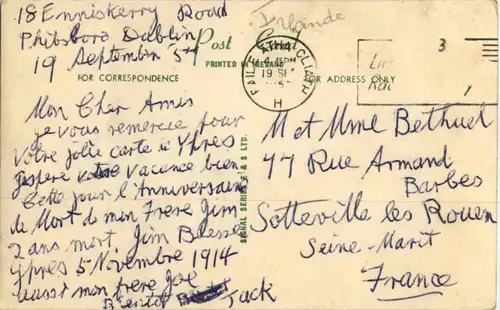 18 Enniskerry Road
Phibsboro Dublin
19 Septembre 57
Irlande
Post Card
PRINTED IN IRELAND
FOR CORRESPONDENCE
FOR ADDRESS ONLY
BAILE ÁTHA CLIATH
19 SE
H
3
Mon Cher Amis
je vous remercie pour
votre jolie carte de Ypres
j'espere votre vacance bien
Cette jour l'Anniversaire
de Mort de mon Frere Jim
2 ans mort. Jim Blessé
Ypres 5 Novembre 1914
aussi mon frere Joe
Bientot
Jack
SIGNAL SERIES E & S LTD.
M et Mme Bethuel
77 Rue Armand
Barbes
Sotteville les Rouen
Seine-Marit
France